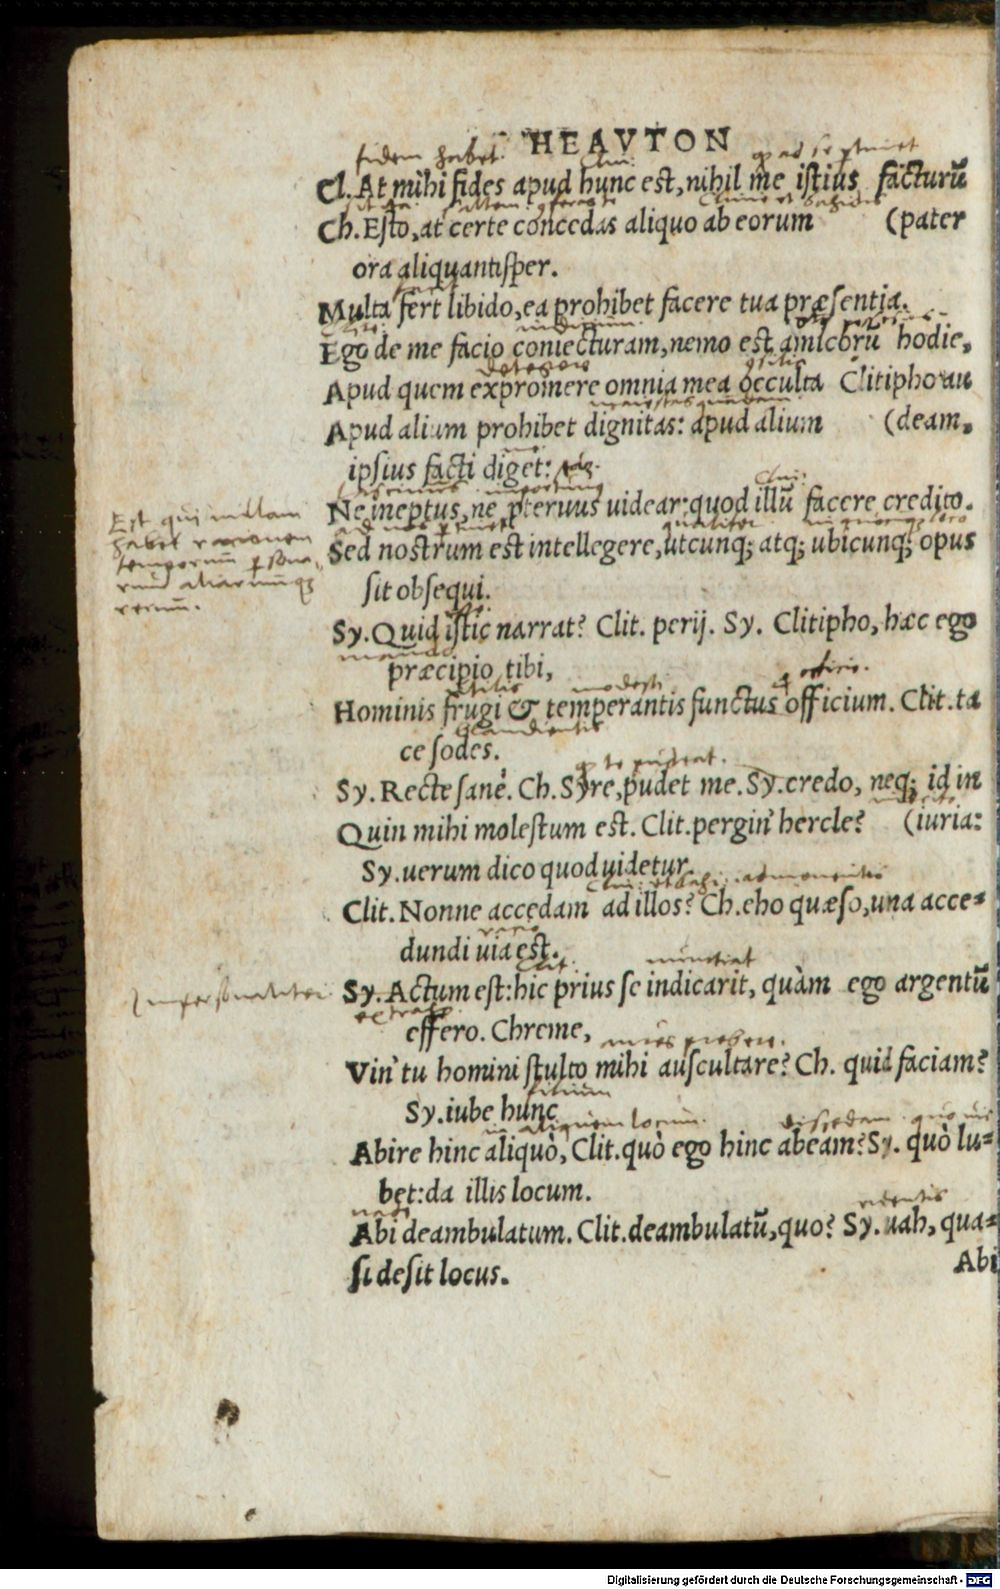 HEAVTON
fidem habet.
Cl. At mihi fides apud hunc est, nihil me istius facturũ
Ch. Esto, at certe concedas aliquo ab eorum (pater
ora aliquantisper.
Multa fert libido, ea prohibet facere tua præsentia.
Ego de me facio coniecturam, nemo est amicorũ hodie,
Apud quem expromere omnia mea occulta Clitipho au
Apud alium prohibet dignitas: apud alium (deam,
ipsius facti piget:
Ne ineptus, ne pteruus uidear: quod illũ facere credito.
Sed nostrum est intellegere, utcunq; atq; ubicunq; opus
sit obsequi.
Est qui nullam
habet rationem
temporum psona
rum aliarumq;
rerum.
Sy. Quid istic narrat? Clit. perij. Sy. Clitipho, hæc ego
præcipio tibi,
utilis modesti officio.
Hominis frugi & temperantis functus officium. Clit. ta
ce sodes.
Sy. Recte sanè. Ch. Syre, pudet me. Sy. credo, neq; id in
Quin mihi molestum est. Clit. pergin' hercle? (iuria:
Sy. uerum dico quod uidetur.
admonentis
Clit. Nonne accedam ad illos? Ch. eho quæso, una acce=
dundi uia est.
Impersonaliter
nuntiat
Sy. Actum est: hic prius se indicarit, quàm ego argentũ
effero. Chreme,
Vin' tu homini stulto mihi auscultare? Ch. quid faciam?
Sy. iube hunc
aliquem locum. discedam
Abire hinc aliquò, Clit. quò ego hinc abeam? Sy. quò lu=
bet: da illis locum.
ridentis
Abi deambulatum. Clit. deambulatũ, quo? Sy. uah, qua=
si desit locus.
Abi
Digitalisierung gefördert durch die Deutsche Forschungsgemeinschaft - DFG